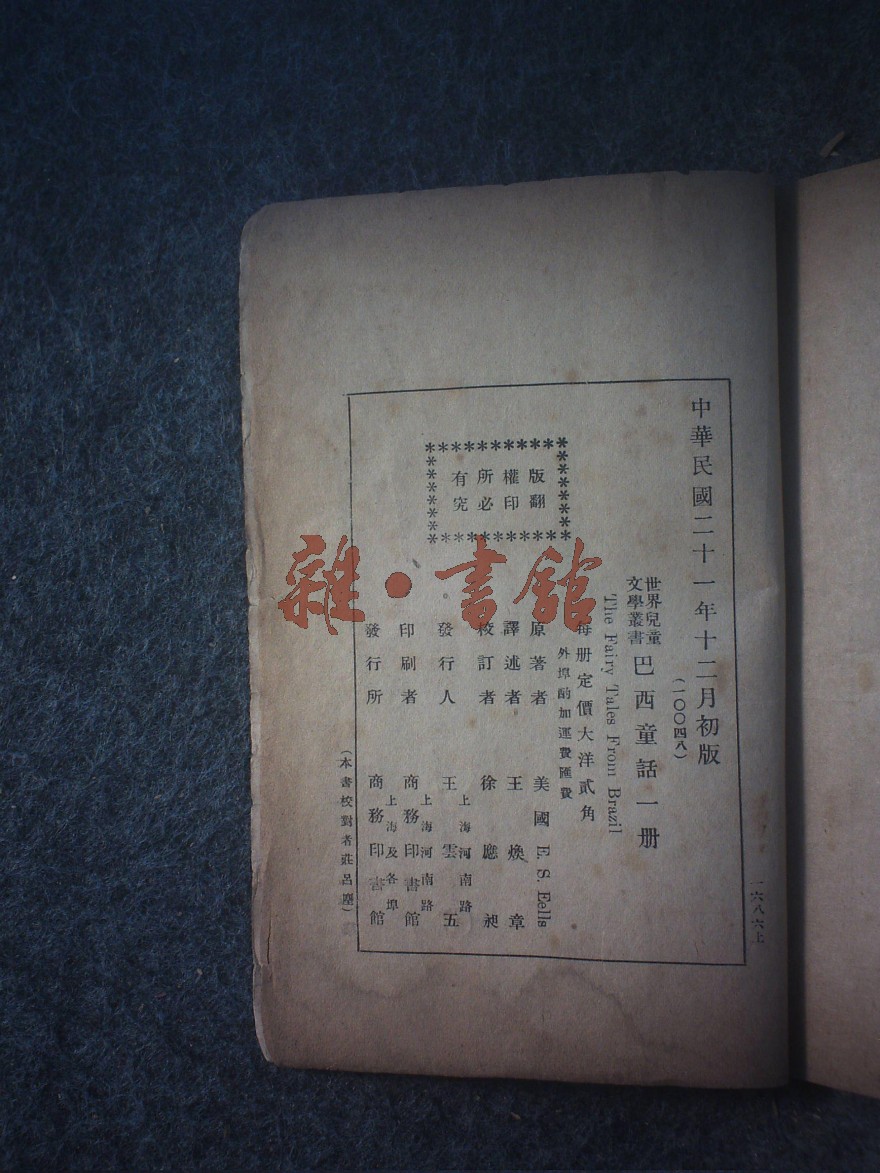 中華民國二十一年十二月初版
(一〇〇四八)
世界兒童
文學叢書
巴西童話一册
The Fairy Tales From Brazil
每册定價大洋貳角
外埠酌加運費匯費
版權所有
翻印必究
原著者 美國 E. S. Eells
譯述者 王煥章
校訂者 徐應昶
上海河南路
發行人 王雲五
上海河南路
印刷者 商務印書館
上海及各埠
發行所 商務印書館
(本書校對者莊呂塵)
一六八六上
雜·書館